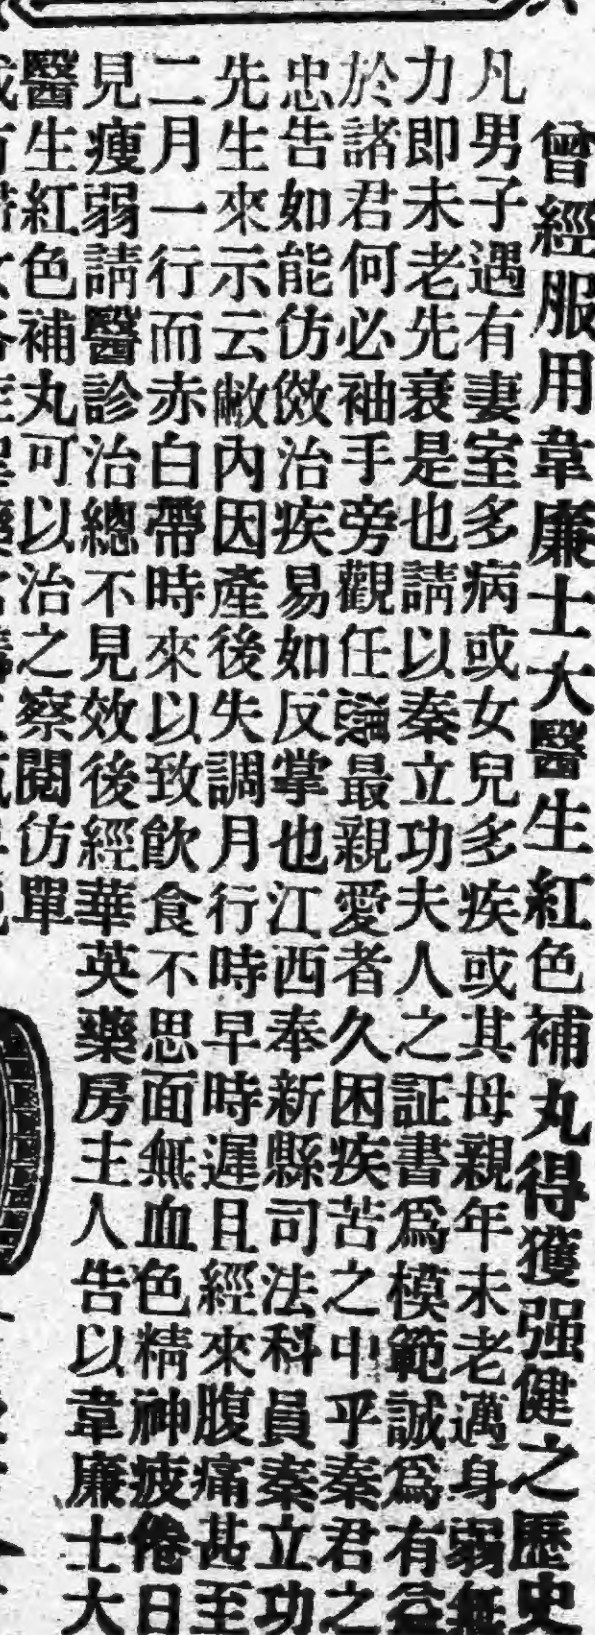 曾經服用韋廉士大醫生紅色補丸得獲强健之歷史
凡男子遇有妻室多病或女兒多疾或其母親年未老邁身弱無
力即未老先衰是也請以秦立功夫人之証書爲模範誠爲有益
於諸君何必袖手旁觀任最親愛者久困疾苦之中乎秦君之
忠告如能仿傚治疾易如反掌也江西奉新縣司法科員秦立功
先生來示云敝內因產後失調月行時早時遲且經來腹痛甚至
二月一行而赤白帶時來以致飲食不思面無血色精神疲倦日
見瘦弱請醫診治總不見效後經華英藥房主人告以韋廉士大
醫生紅色補丸可以治之察閱仿單